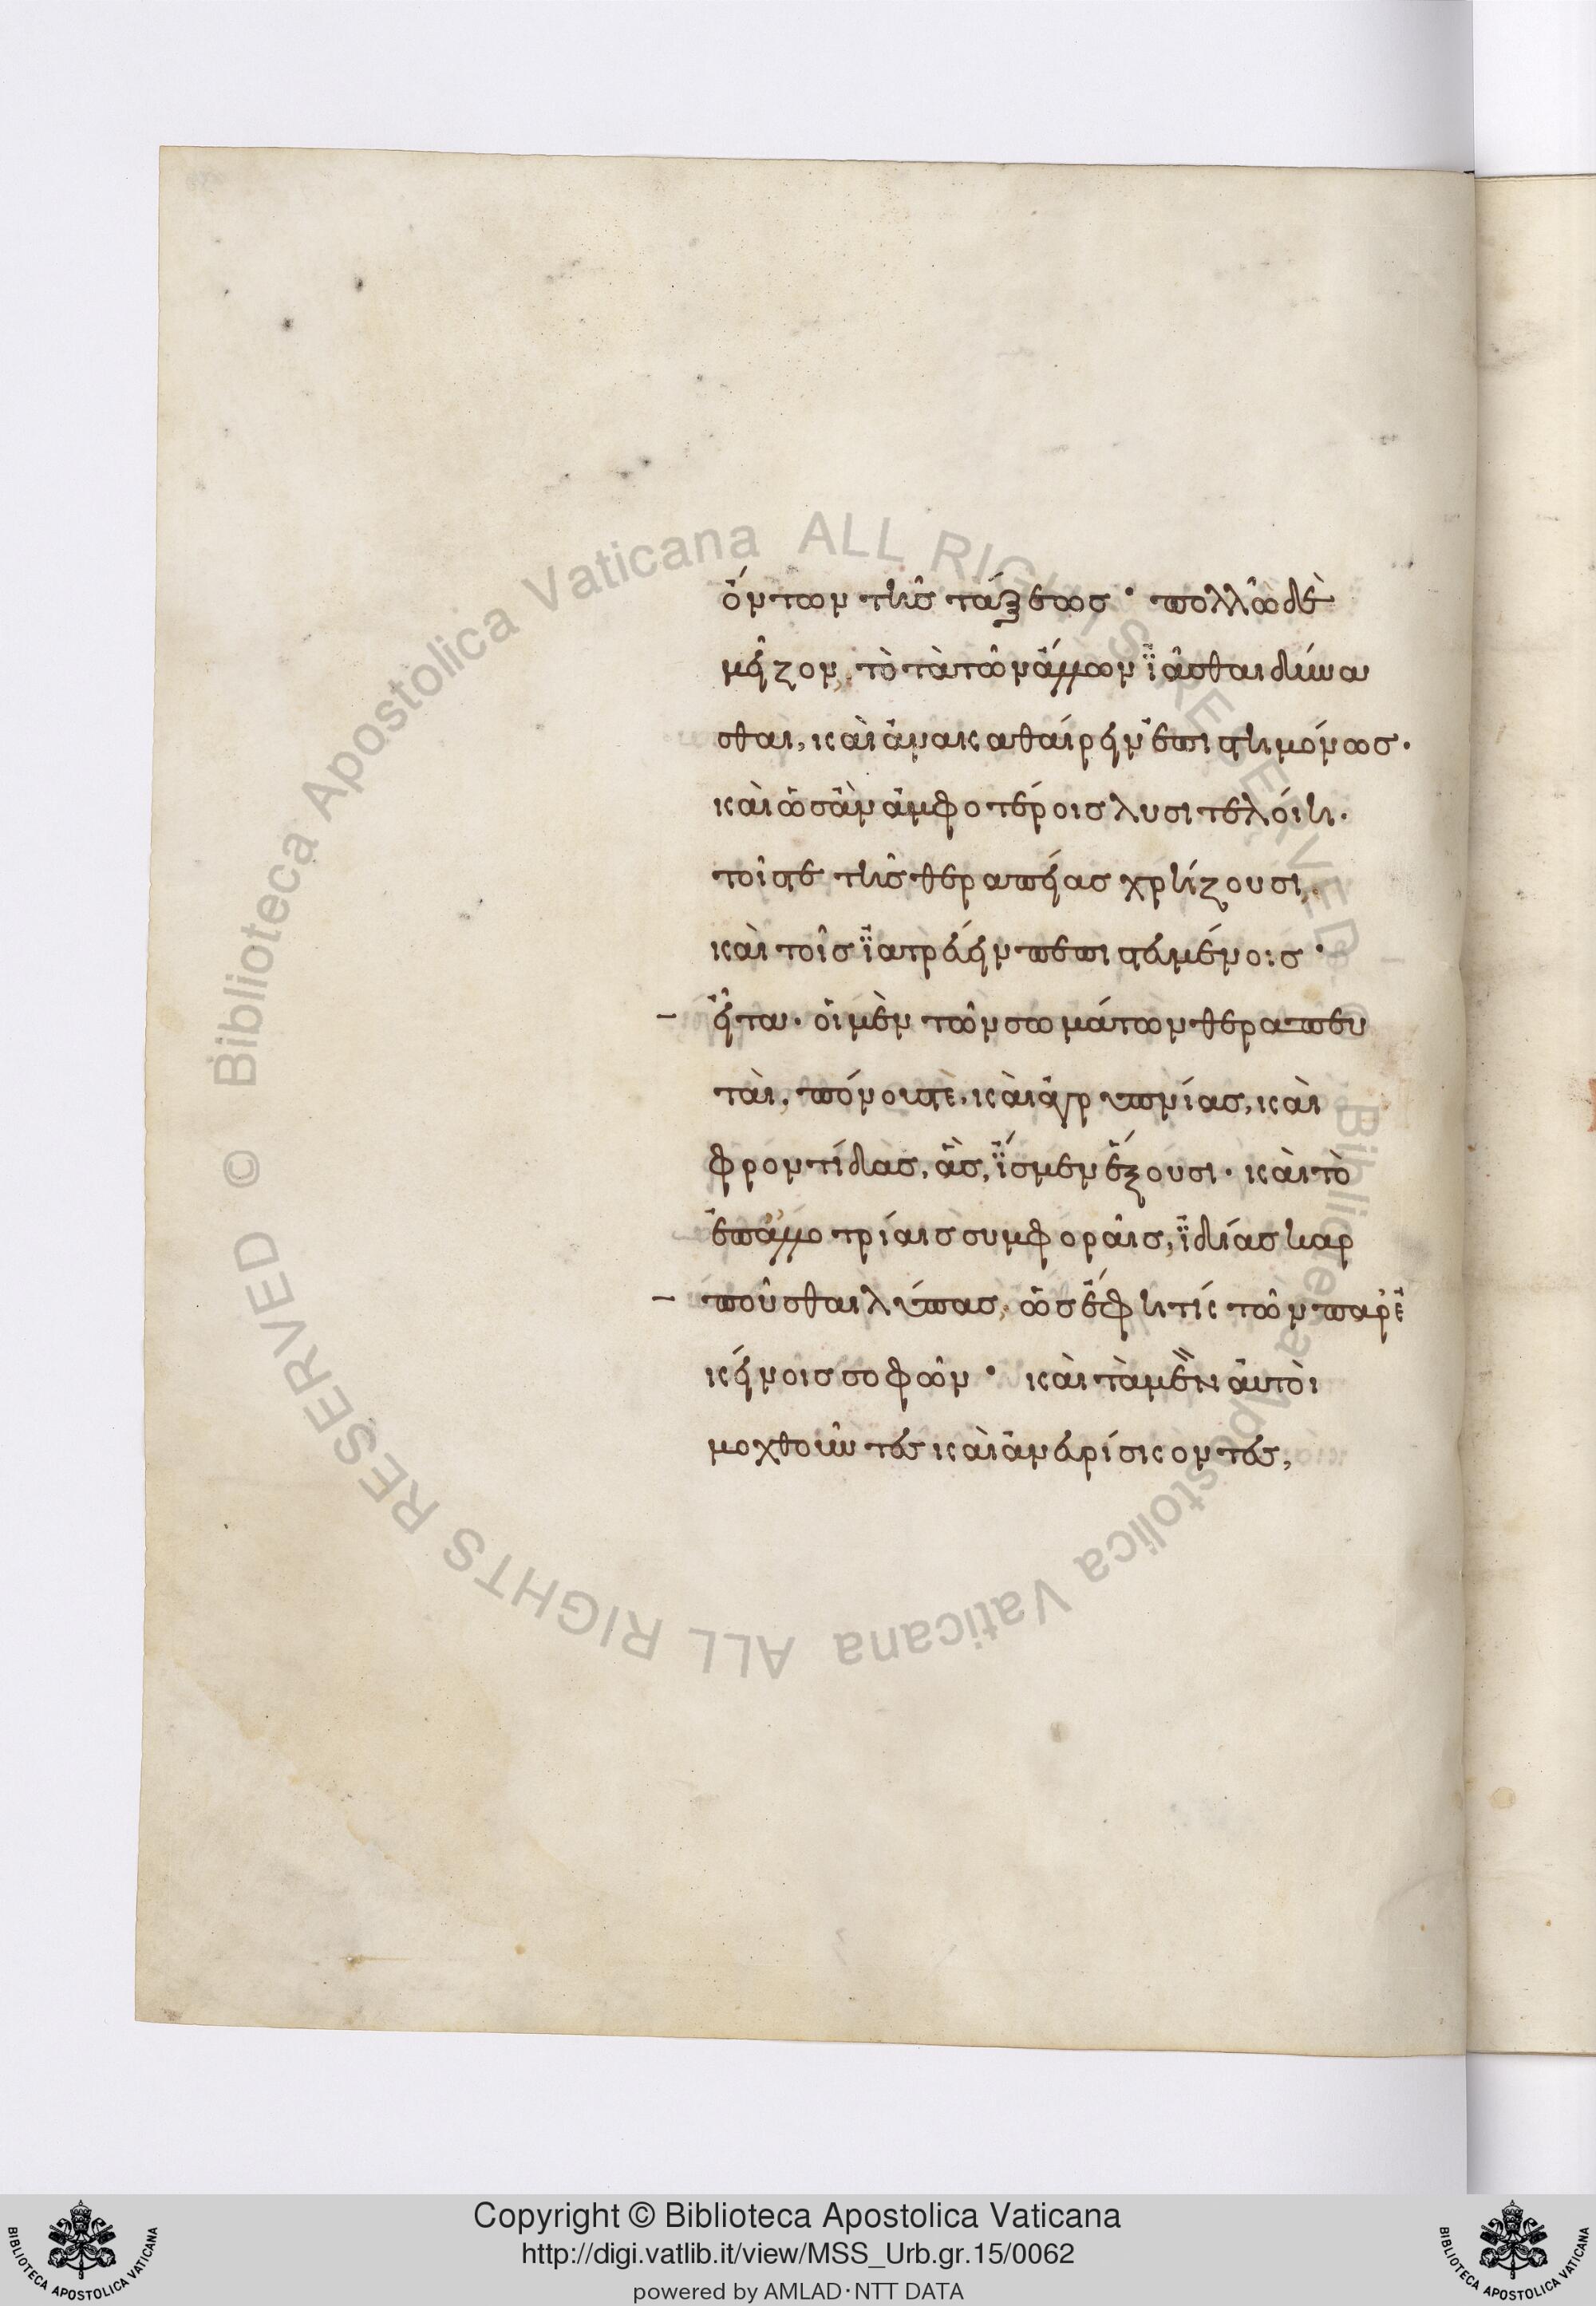 ὄντων τῆς τάξεως· πολλῶ δὲ
μεῖζον, τὸ τὰ τῶν ἄλλων ϊᾶσθαι δύνα
σθαι, καὶ ἀνακαθαίρειν ἐπιστημόνως.
καὶ ὡς ἂν ἀμφοτέροις λυσιτελοίη.
τοῖστε τῆς θεραπείας χρήζουσι,
καὶ τοῖς ϊατρεύειν πεπιστευμένοις·
εἶτα. οἱ μὲν τῶν σωμάτων θεραπευ
ταὶ, πόνουστε, καὶ ἀγρυπνίας, καὶ
φροντίδας, ἃς, ϊσμεν ἕξουσι. καὶ τὸ
ἐπ' ἀλλοτρίαις συμφοραῖς, ϊδίας καρ
ποῦσθαι λύπας, ὡς ἔφη τίς τῶν παρ' ἐ
κείνοις σοφῶν· καὶ τὰ μὲν αὐτοὶ
μοχθοῦντες καὶ ἀνευρίσκοντες,
Copyright © Biblioteca Apostolica Vaticana
http://digi.vatlib.it/view/MSS_Urb.gr.15/0062
powered by AMLAD·NTT DATA
© Biblioteca Apostolica Vaticana ALL RIGHTS RESERVED
© Biblioteca Apostolica Vaticana ALL RIGHTS RESERVED
BIBLIOTECA APOSTOLICA VATICANA
BIBLIOTECA APOSTOLICA VATICANA